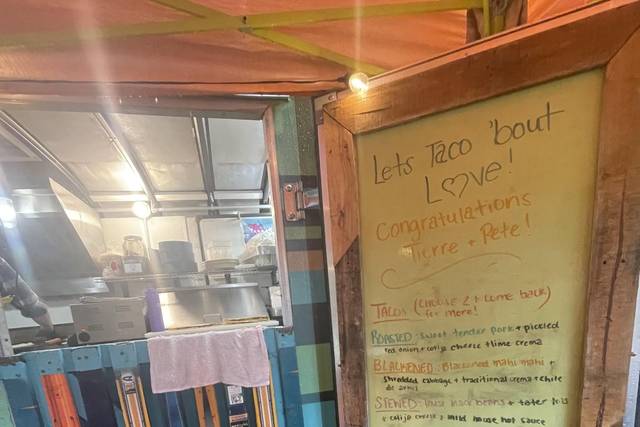 Lets Taco 'bout
LOve!
Congratulations
Tierre + Pete!
TACOS (CHOOSE 2 + COME BACK)
for more!
ROASTED: Sweet tender pork + pickled
red onion + cotija cheese + lime crema
BLACKENED: Blackened mahi mahi +
shredded cabbage + traditional crema + chile
de arbol
STEWED: black beans + tater tots
+ cotija cheese + mild house hot sauce